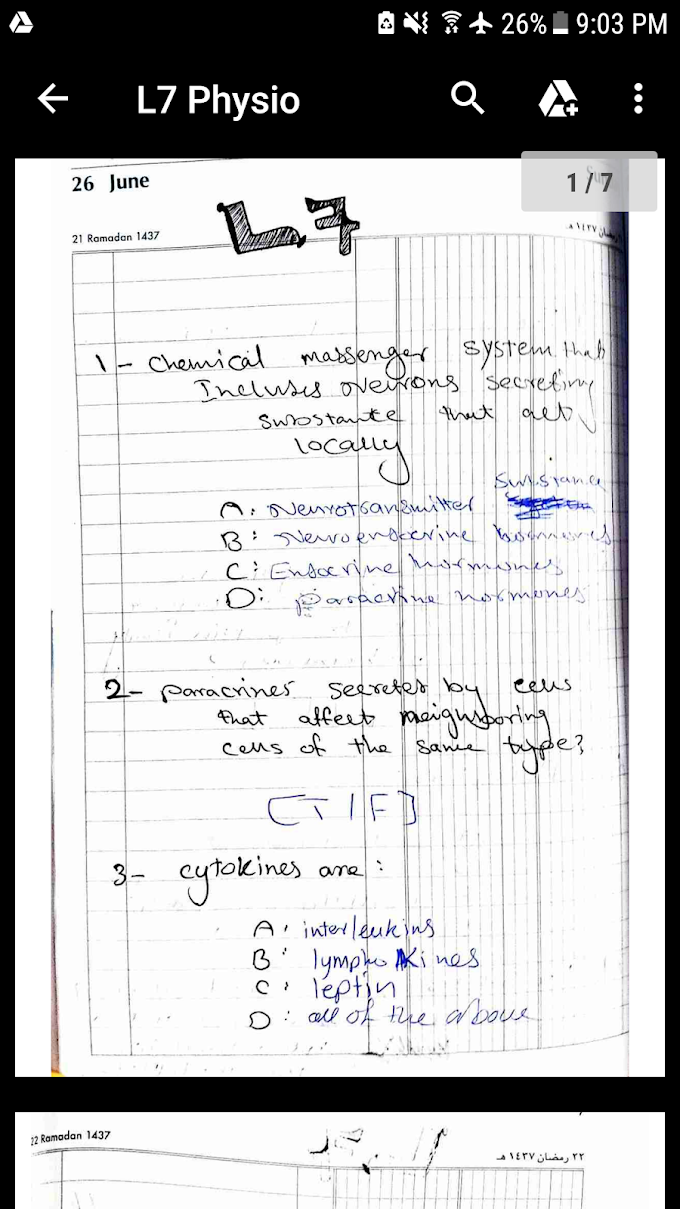 26% 9:03 PM
L7 Physio
1/7
26 June
L.7
21 Ramadan 1437
1- chemical massenger system that
Incluses neurons secreting
substante that act
locally
A: Neurotransmitter substance
B: Neuroendocrine hormones
C: Endocrine hormones
D: paracrine hormones
2- paracrines secretes by cells
that affect neighboring
cells of the same type?
[T/F]
3- cytokines are:
A: interleukins
B: lymphokines
C: leptin
D: all of the above
22 Ramadan 1437
٢٢ رمضان ١٤٣٧ هـ